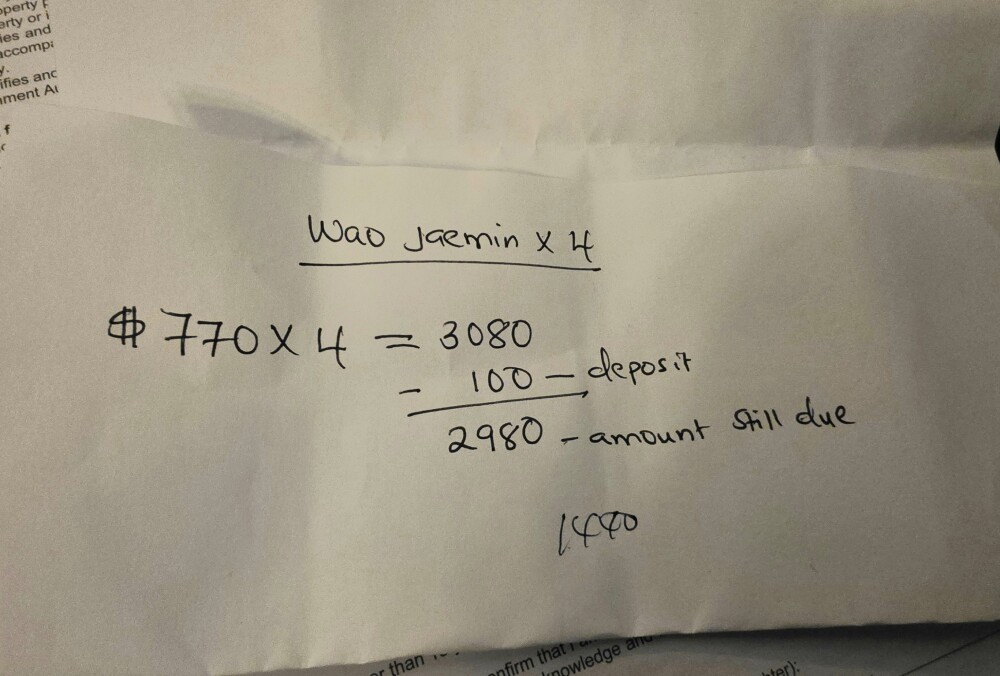 operty
erty or i
ies and
accomp
y.
ifies and
nment
Wao Jaemin x 4
$ 770 x 4 = 3080
- 100 - deposit
2980 - amount still due
er than
onfirm that I
knowledge and
hter):